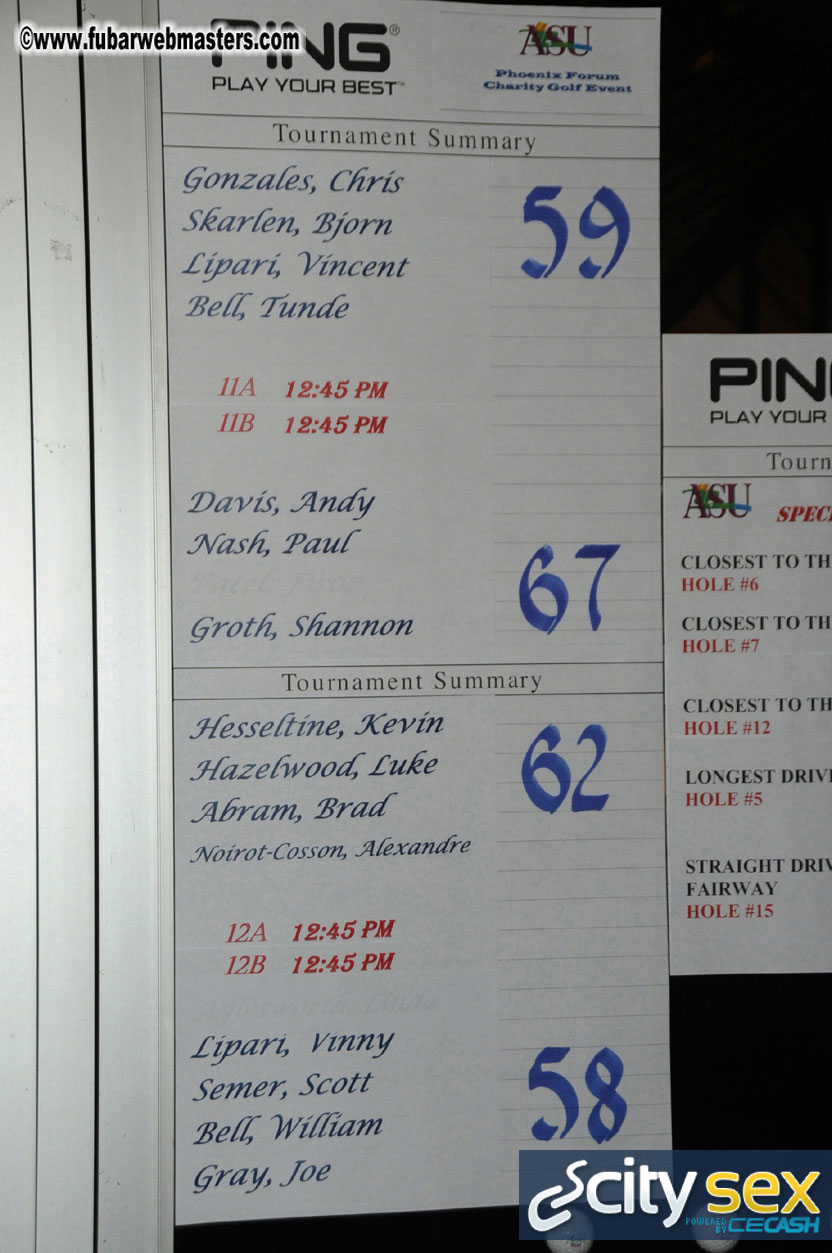 ©www.fubarwebmasters.com
PING®
PLAY YOUR BEST™
ASU
Phoenix Forum
Charity Golf Event
Tournament Summary
Gonzales, Chris
Skarlen, Bjorn
Lipari, Vincent
Bell, Tunde
59
11A 12:45 PM
11B 12:45 PM
Davis, Andy
Nash, Paul
Patel, Firoz
Groth, Shannon
67
Tournament Summary
Hesseltine, Kevin
Hazelwood, Luke
Abram, Brad
Noirot-Cosson, Alexandre
62
12A 12:45 PM
12B 12:45 PM
Aylesworth, Linda
Lipari, Vinny
Semer, Scott
Bell, William
Gray, Joe
58
PING
PLAY YOUR
Tourn
ASU SPECI
CLOSEST TO TH
HOLE #6
CLOSEST TO TH
HOLE #7
CLOSEST TO TH
HOLE #12
LONGEST DRIVE
HOLE #5
STRAIGHT DRIV
FAIRWAY
HOLE #15
citysex
POWERED BY CECASH